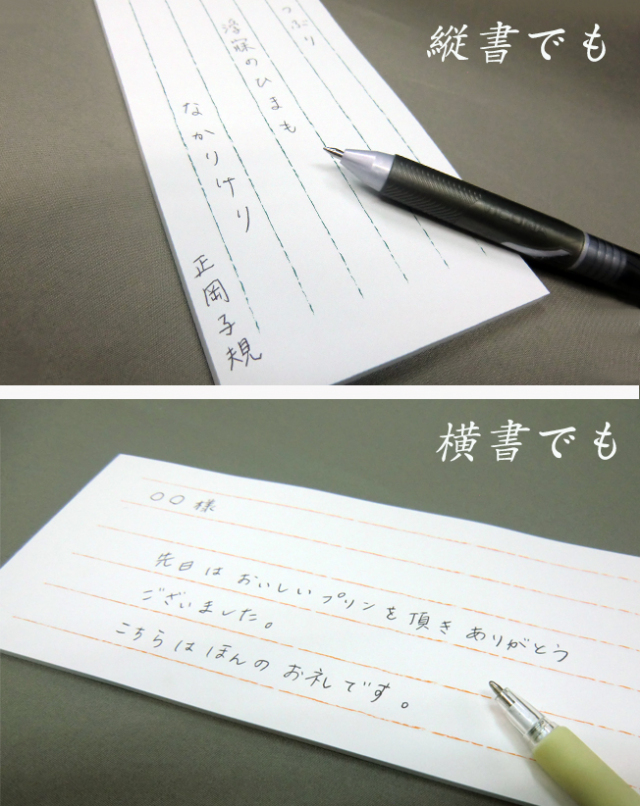 縦書でも
つぶり
浮寐のひまも
なかりけり
正岡子規
横書でも
○○様
先日はおいしいプリンを頂きありがとう
ございました。
こちらはほんのお礼です。